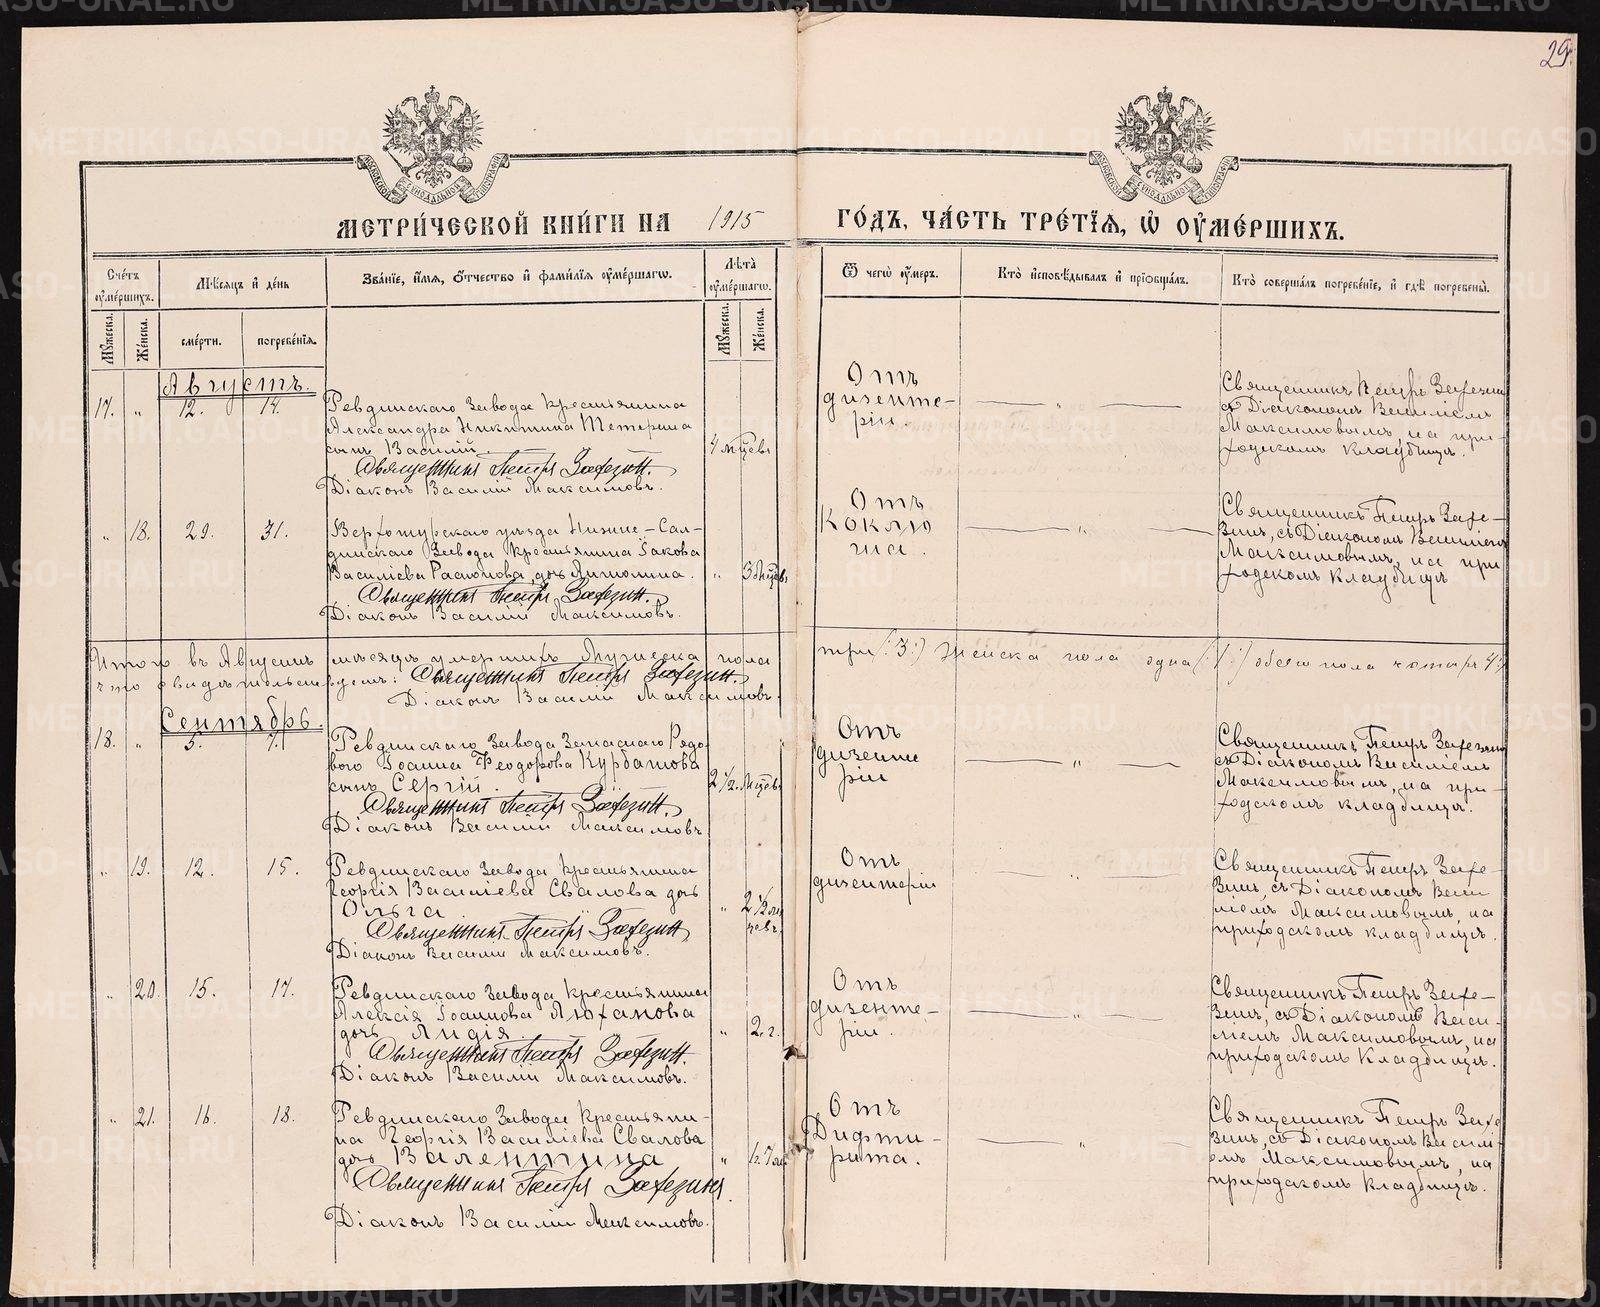 29.
МОСКОВСКОЙ СИНОДАЛЬНОЙ ТИПОГРАФІИ
МОСКОВСКОЙ СИНОДАЛЬНОЙ ТИПОГРАФІИ
МЕТРИ́ЧЕСКОЙ КНИ́ГИ НА 1915 ГО́ДЪ, ЧА́СТЬ ТРЕ́ТЇѦ, Ѽ ОУ҆МЕ́РШИХЪ.
Сче́тъ оу҆ме́ршихъ.
Мѣ́сѧцъ и҆ де́нь
Зва́нїе, и҆́мѧ, ѻ҆́тчество и҆ фами́лїѧ оу҆ме́ршагѡ.
Лѣ́та оу҆ме́ршагѡ.
Ѿ чегѡ̀ оу҆́меръ.
Кто̀ и҆сповѣ́дывалъ и҆ прїѡбща́лъ.
Кто̀ соверша́лъ погребе́нїе, и҆ гдѣ̀ погребены̀.
Мꙋ́жеска.
Же́нска.
сме́рти.
погребе́нїѧ.
Мꙋ́жеска.
Же́нска.
Августъ.
17. " 12. 14.
Ревдинскаго Завода крестьянина
Александра Никитина Тетерина
сынъ Василій.
4 мѣсцевъ
Священникъ Петръ Зафезин.
Діаконъ Василій Максимовъ.
Отъ
дизенте-
ріи.
"
Священникъ Петръ Зафезин
съ Діакономъ Василіемъ
Максимовымъ, на при-
ходскомъ кладбищѣ.
" 18. 29. 31.
Верхотурскаго уѣзда Нижне-Сал-
динскаго Завода крестьянина Іакова
Василіева Распопова, дочь Антонина.
" 3 мѣсцевъ
Священникъ Петръ Зафезин.
Діаконъ Василій Максимовъ.
Отъ
Коклю
ша.
"
Священникъ Петръ Зафе-
зинъ, съ Діакономъ Василіемъ
Максимовымъ, на при
ходскомъ кладбищѣ
Итого въ Августѣ мѣсяцѣ умершихъ Мужеска пола три (:3:) Женска пола одна (:1:) обоего пола четыре 4
что свидѣтельствуемъ: Священникъ Петръ Зафезин.
Діаконъ Василій Максимовъ.
Сентябрь.
18. " 5. 7.
Ревдинскаго Завода Запаснаго Рядо-
вого Іоанна Феодорова Курбатова
сынъ Сергій.
2 1/2. Мѣсцевъ
Священникъ Петръ Зафезин.
Діаконъ Василій Максимовъ
Отъ
дизенте
ріи
"
Священникъ Петръ Зафезин
съ Діакономъ Василіемъ
Максимовымъ, на при-
ходскомъ кладбищѣ.
" 19. 12. 15.
Ревдинскаго Завода крестьянина
Георгія Василіева Свалова дочь
Ольга
" 2 1/2 мѣ
цевъ.
Священникъ Петръ Зафезин
Діаконъ Василій Максимовъ.
Отъ
дизентеріи
"
Священникъ Петръ Зафе-
зинъ, съ Діакономъ Васи
ліемъ Максимовымъ, на
приходскомъ кладбищѣ.
" 20. 15. 17.
Ревдинскаго Завода крестьянина
Алексія Іоаннова Люханова
дочь Лидія.
" 2. г.
Священникъ Петръ Зафезин.
Діаконъ Василій Максимовъ.
Отъ
дизенте-
ріи.
"
Священникъ Петръ Зафе-
зинъ, съ Діакономъ Васи-
ліемъ Максимовымъ, на
приходскомъ кладбищѣ.
" 21. 16. 18.
Ревдинскаго Завода крестьяни-
на Георгія Василіева Свалова
дочь Валентина
"
Священникъ Петръ Зафезинъ.
Діаконъ Василій Максимовъ.
Отъ
Дифти-
рита.
"
Священникъ Петръ Зафе
зинъ, съ Діакономъ Василі-
емъ Максимовымъ, на
приходскомъ кладбищѣ.
METRIKI.GASO-URAL.RU